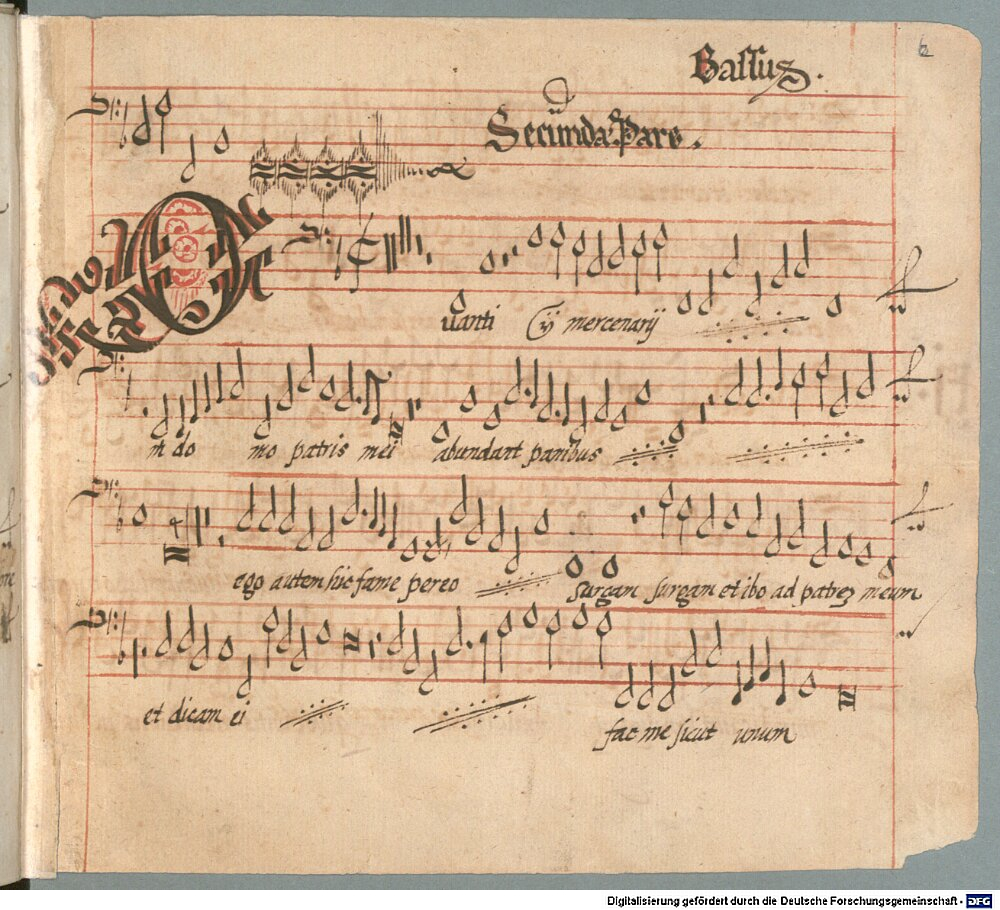 Bassus.
6
Secunda Pars.
Quanti ij mercenarij
in do mo patris mei abundant panibus
ego autem hic fame pereo surgam surgam et ibo ad patrez meum
et dicam ei fac me sicut unum
Digitalisierung gefördert durch die Deutsche Forschungsgemeinschaft - DFG